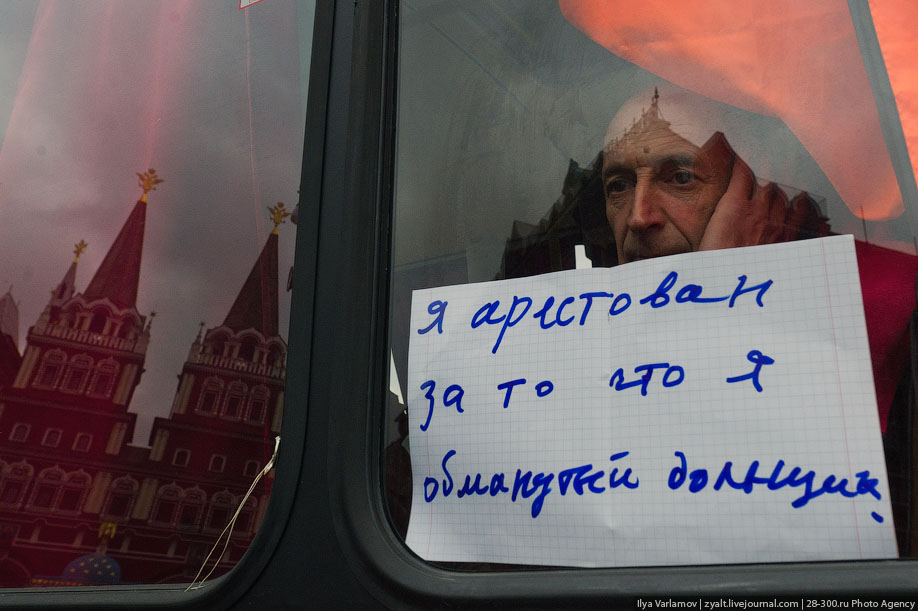 я арестован
за то что я
обманутый дольщик
Ilya Varlamov | zyalt.livejournal.com | 28-300.ru Photo Agency